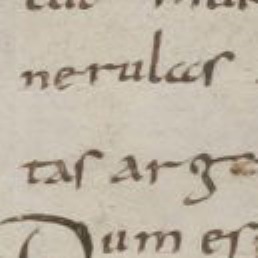 nerulas
tas arg
Dum es